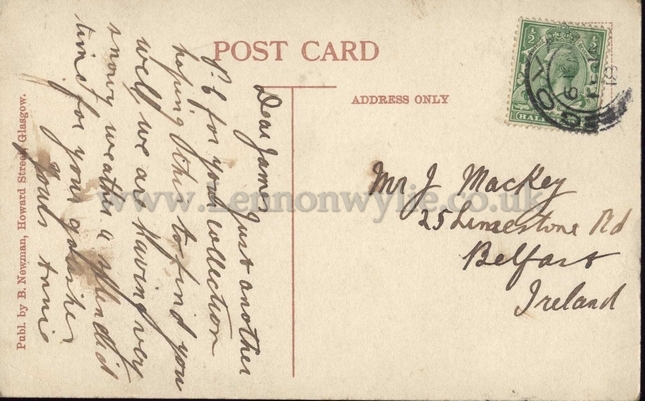 POST CARD
ADDRESS ONLY
Dear James Just another
P.C for your collection
hoping this to find you
well, we are having very
snowy weather a splendid
time for your
yours Annie
Mr J Mackey
25 Limestone Rd
Belfast
Ireland
Publ. by B. Newman, Howard Street, Glasgow.
www.Lennonwylie.co.uk
HALF